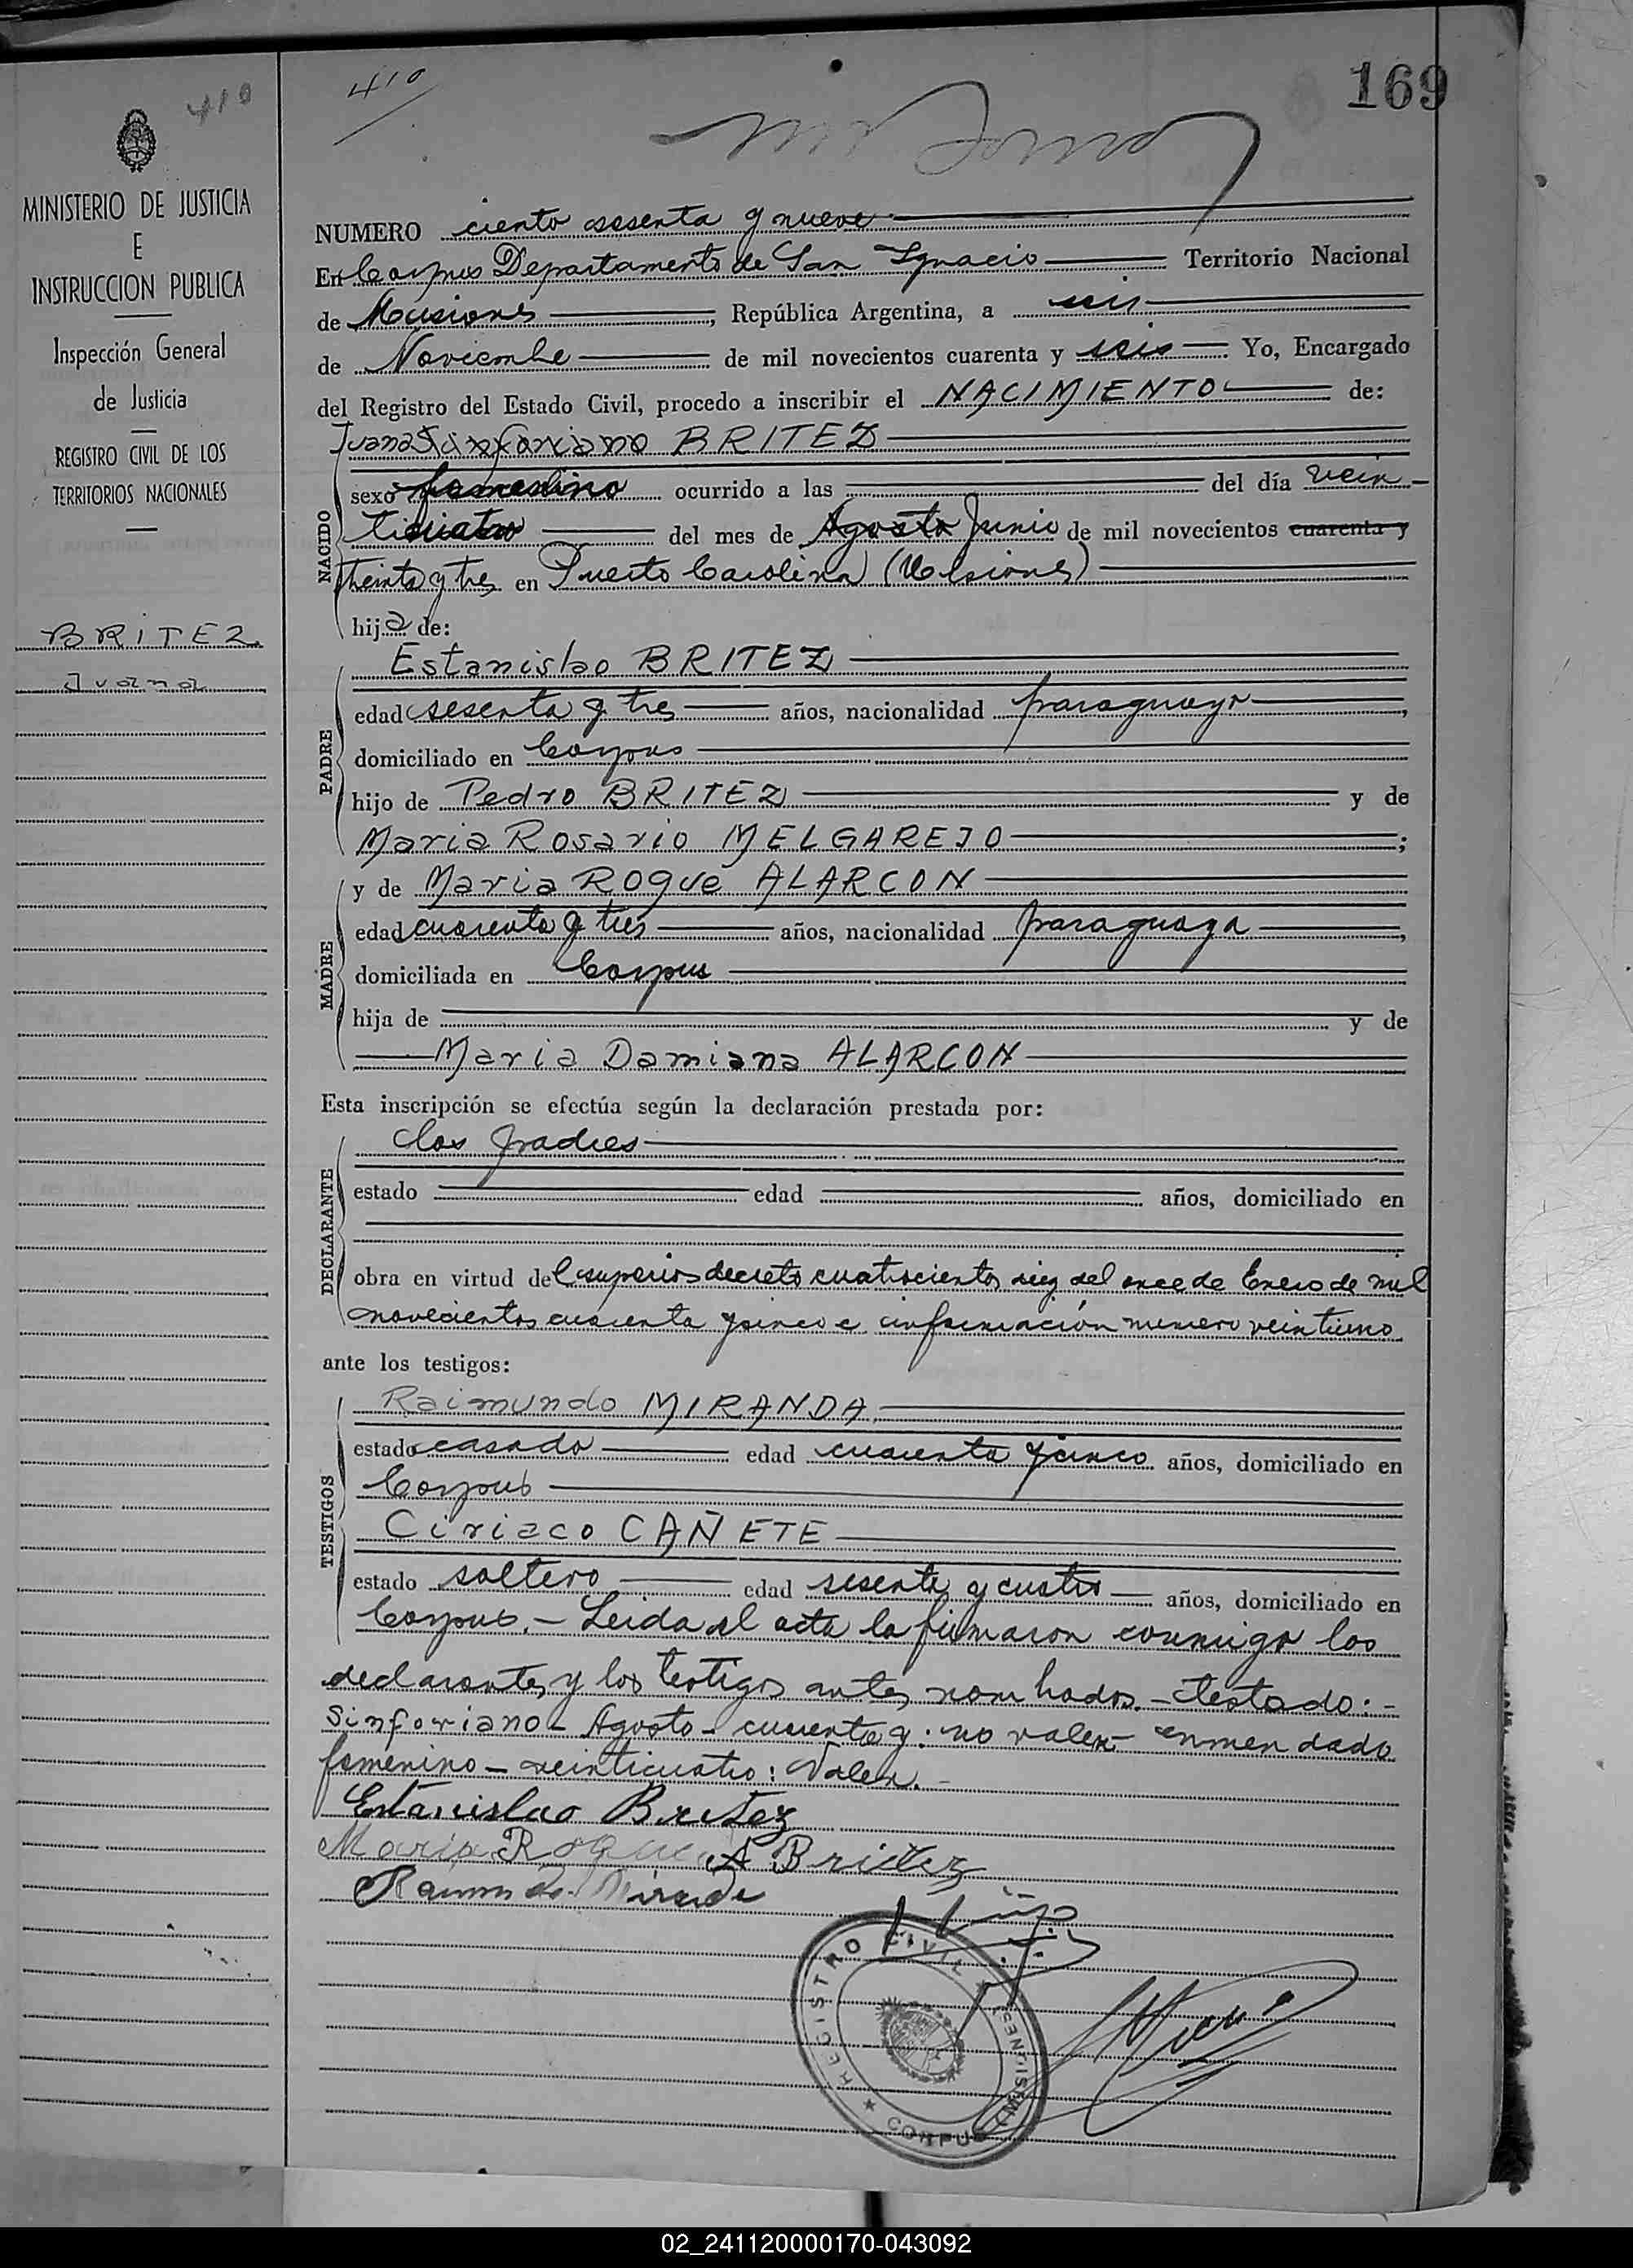 410
410
169
MINISTERIO DE JUSTICIA
E
INSTRUCCION PUBLICA
Inspección General
de Justicia
REGISTRO CIVIL DE LOS
TERRITORIOS NACIONALES
BRITEZ
Juana
NUMERO ciento sesenta y nueve
En Corpus Departamento de San Ignacio Territorio Nacional
de Misiones, República Argentina, a seis
de Noviembre de mil novecientos cuarenta y seis. Yo, Encargado
del Registro del Estado Civil, procedo a inscribir el NACIMIENTO de:
Juana Sinforiano BRITEZ
NACIDO
sexo femenino ocurrido a las del día vein-
ticuatro del mes de Agosto Junio de mil novecientos cuarenta y
treinta y tres en Puerto Carolina (Misiones)
hija de:
Estanislao BRITEZ
PADRE
edad sesenta y tres años, nacionalidad paraguayo,
domiciliado en Corpus
hijo de Pedro BRITEZ y de
Maria Rosario MELGAREJO;
y de Maria Roque ALARCON
MADRE
edad cuarenta y tres años, nacionalidad paraguaya,
domiciliada en Corpus
hija de y de
Maria Damiana ALARCON
Esta inscripción se efectúa según la declaración prestada por:
los padres
DECLARANTE
estado edad años, domiciliado en
obra en virtud del superior decreto cuatrocientos diez del once de Enero de mil
novecientos cuarenta y cinco e información numero veintiuno
ante los testigos:
TESTIGOS
Raimundo MIRANDA
estado casado edad cuarenta y cinco años, domiciliado en
Corpus
Ciriaco CAÑETE
estado soltero edad sesenta y cuatro años, domiciliado en
Corpus.- Leida el acta la firmaron conmigo los
declarantes y los testigos antes nombrados.- Testado:-
Sinforiano - Agosto - cuarenta y: no valen - enmendado
femenino - veinticuatro: Valen.-
Estanislao Britez
Maria Roque A Britez
Raimundo Miranda
REGISTRO CIVIL
CORPUS (MISIONES)
02_241120000170-043092